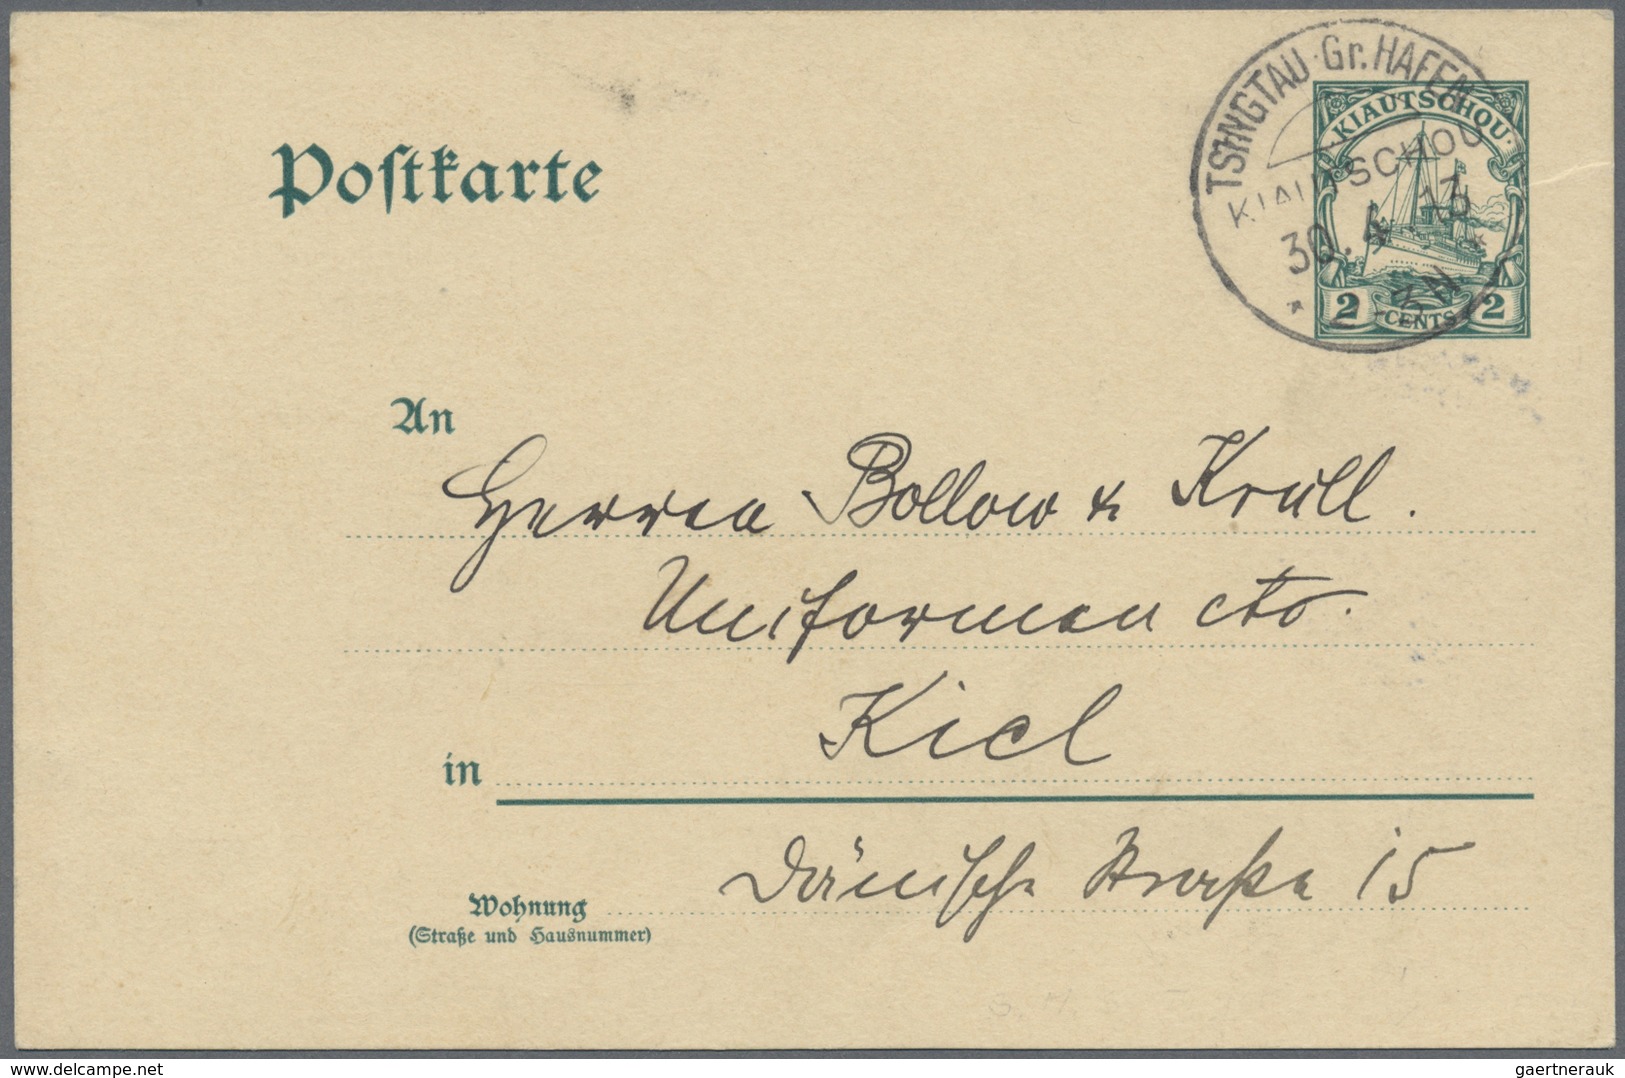 TSINGTAU · Gr. HAFEN
KIAUTSCHOU
30. 4. 13
KIAUTSCHOU
2 CENTS 2
Postkarte
An
Herren Bollow & Krull.
Uniformen etc.
Kiel
in
Dänische Straße 15
Wohnung
(Straße und Hausnummer)
delcampe.net
gaertnerauk